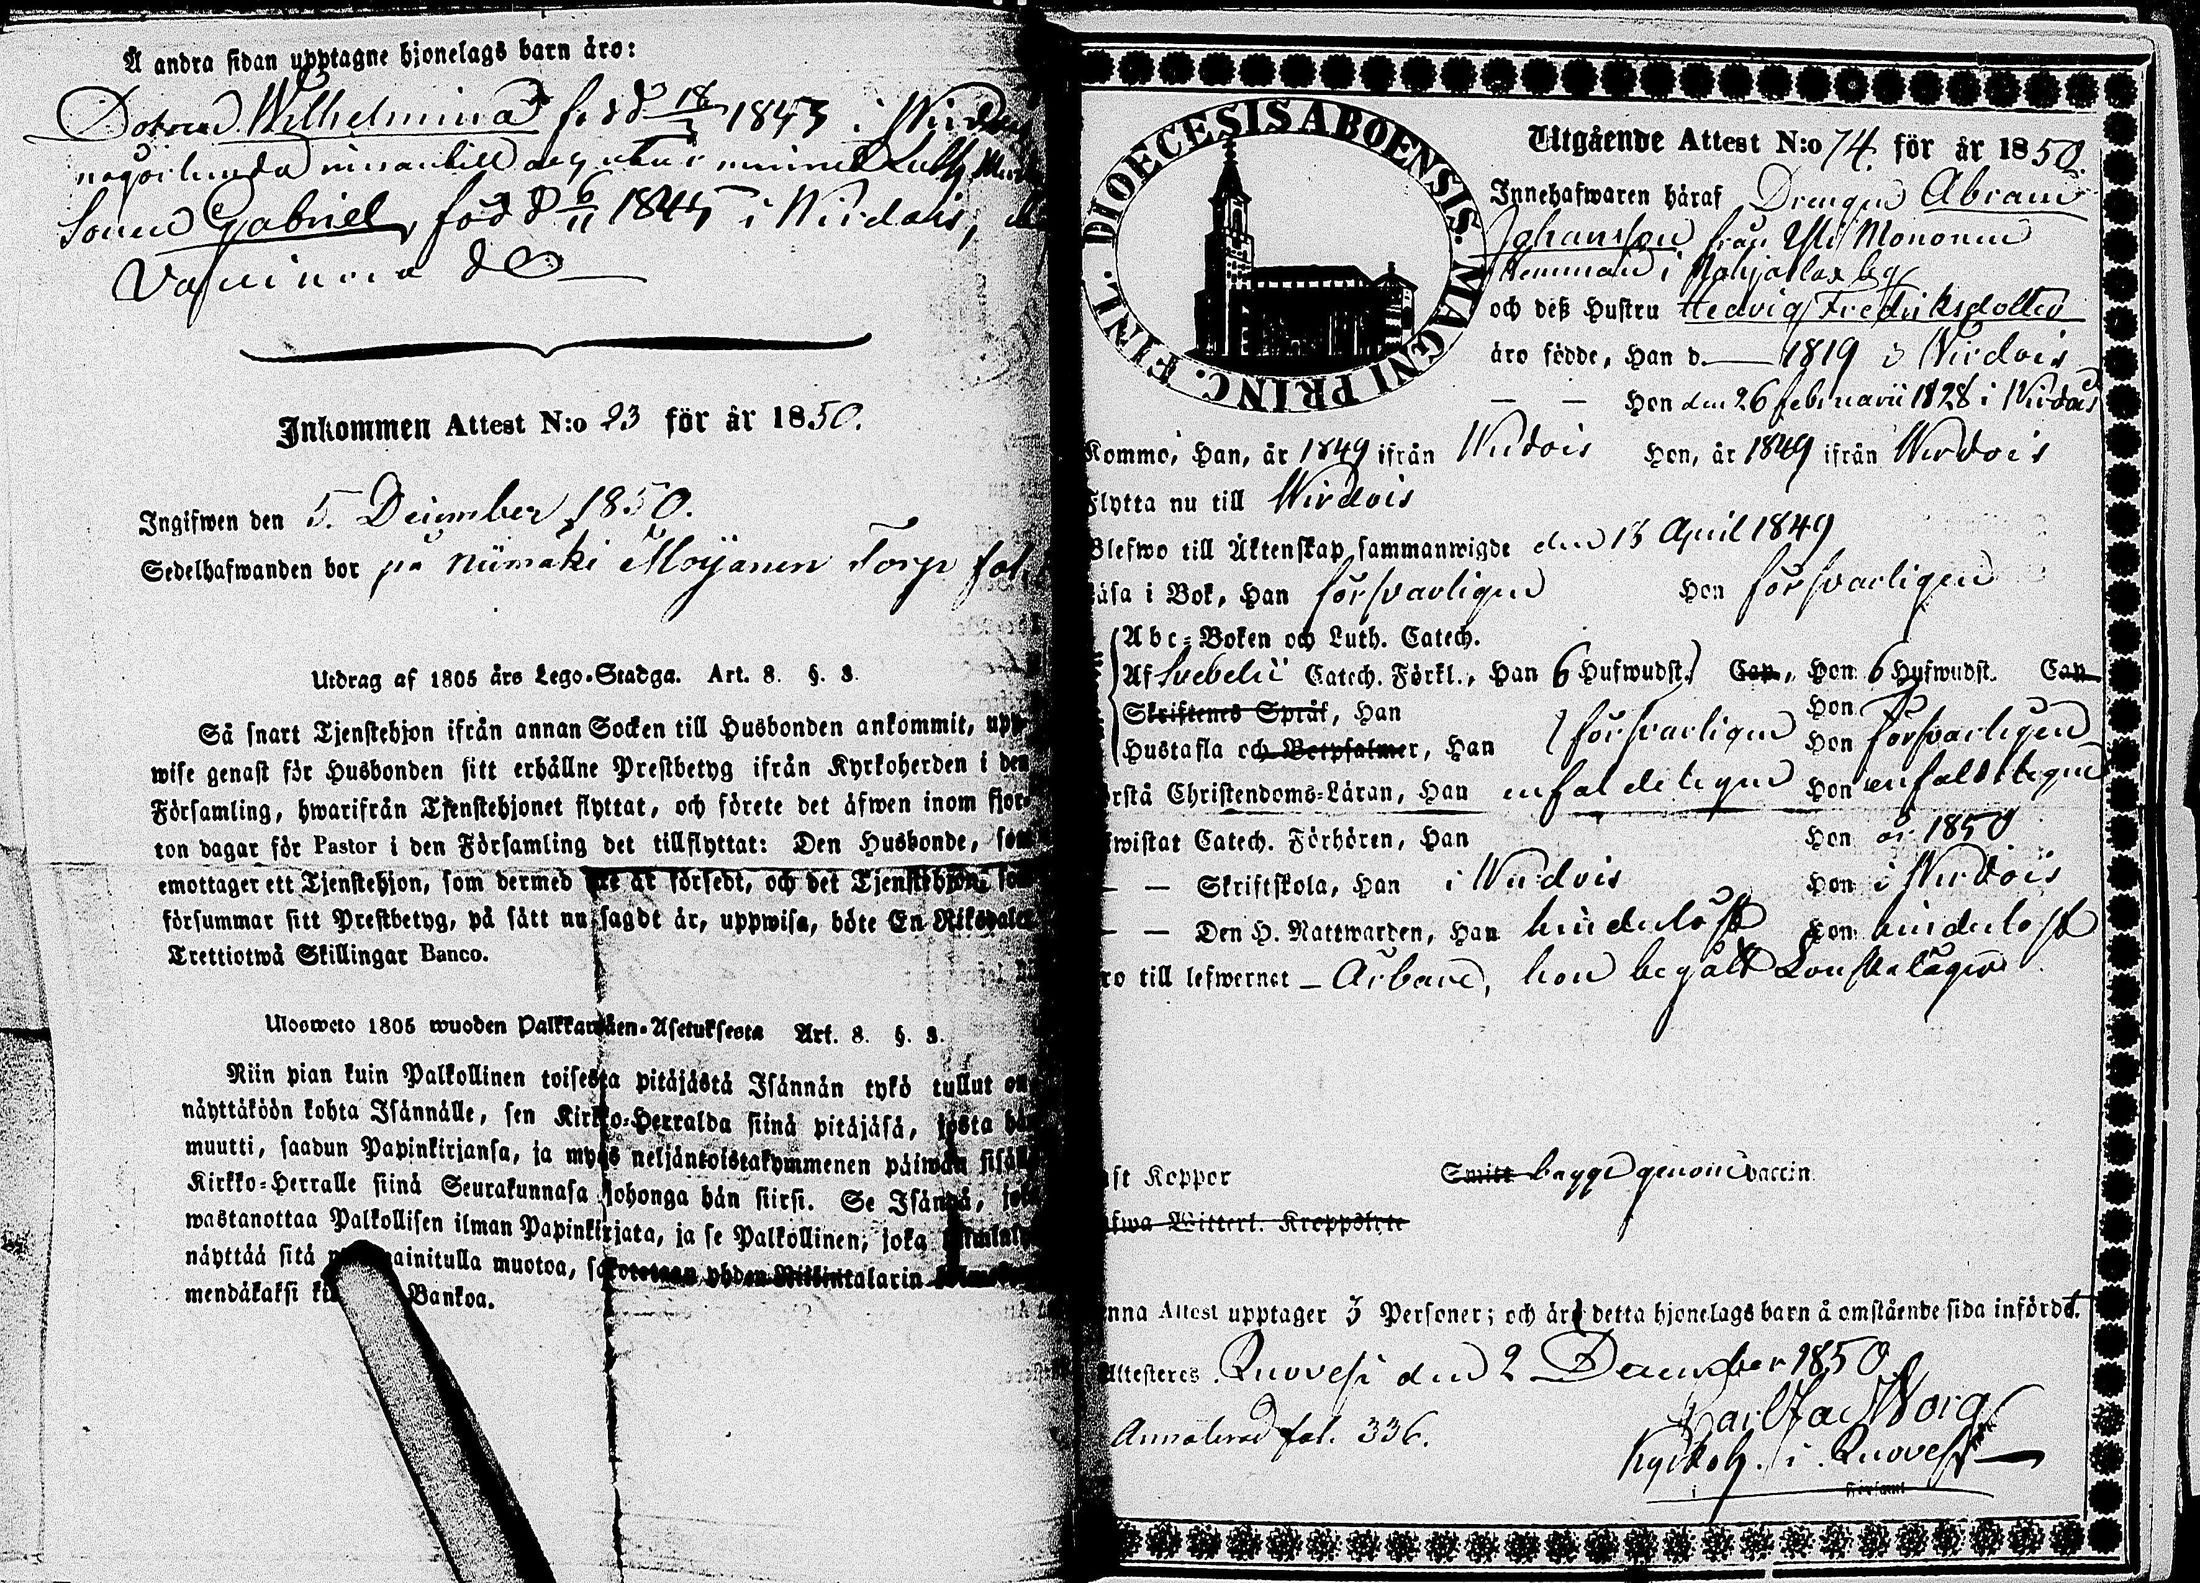 Å andra sidan upptagne hjonelags barn äro:
Dotren Wilhelmina född 18/3 1843 i
Sonen Gabriel, född 6/11 1845 i Wirdois,
Inkommen Attest N:o 23 för år 1850.
Ingifwen den 5. December 1850.
Sedelhafwanden bor på Niimäki Moijanen Torp
Utdrag af 1805 års Lego-Stadga. Art. 8. §. 8.
Så snart Tjenstehjon ifrån annan Socken till Husbonden ankommit, upp-
wise genast för Husbonden sitt erhållne Prestbetyg ifrån Kyrkoherden i den
Församling, hwarifrån Tjenstehjonet flyttat, och förete det äfwen inom fjor-
ton dagar för Pastor i den Församling det tillflyttat: Den Husbonde, som
emottager ett Tjenstehjon, som dermed är försedt, och det Tjenstehjon, som
försummar sitt Prestbetyg, på sätt nu sagdt är, uppwisa, böte En Riksdaler
Trettiotwå Skillingar Banco.
Ulosweto 1805 wuoden Palkkawäen-Asetuksesta Art. 8. §. 8.
Niin pian kuin Palkollinen toisesta pitäjästä Isännän tykö tullut on,
näyttäköön kohta Isännälle, sen Kirkko-Herralda siinä pitäjäsä, josta hän
muutti, saadun Papinkirjansa, ja myös neljäntoistakymmenen päiwän sisällä
Kirkko-Herralle siinä Seurakunnasa johonga hän siirsi. Se Isändä, joka
wastanottaa Palkollisen ilman Papinkirjata, ja se Palkollinen, joka
näyttää sitä mainitulla muotoa, sakotetaan yhden Riikintalarin
mendäkaksi Bankoa.
DIOECESIS ABOENSIS. MAGNI PRINC. FINL.
Utgående Attest N:o 74. för år 1850.
Innehafwaren häraf Drengen Abram
Johansson från Mononen
Hemman i
och deß Hustru Hedvig Fredriksdotter
äro födde, Han d. 1819 i Wirdois
— — Hon den 26 februarii 1828 i Wirdois
Kommo, Han, år 1849 ifrån Wirdois Hon, år 1849 ifrån Wirdois
Flytta nu till Wirdois
Blefwo till Äktenskap sammanwigde den 13 April 1849
Läsa i Bok, Han försvarligen Hon försvarligen
Abc-Boken och Luth. Catech.
Af Svebelii Catech. Förkl., Han 6 Hufwudst. Cap., Hon 6 Hufwudst. Cap.
Skriftenes Språk, Han Hon
Hustafla och Botpsalmer, Han försvarligen Hon försvarligen
Förstå Christendoms-Läran, Han enfaldeligen Hon enfaldeligen
Bewistat Catech. Förhören, Han Hon år 1850
— — Skriftskola, Han i Wirdois Hon i Wirdois
— — Den H. Nattwarden, Han hinderlöst Hon hinderlöst
Äro till lefwernet — Ärbare, hon begått Lönskaläger
Haft Koppor Smitt bägge genom vaccin.
Hafwa Witterl. Kroppslyte
Denna Attest upptager 3 Personer; och äro detta hjonelags barn å omstående sida införde.
Attesteras Ruovesi den 2 December 1850
Annoterad fol. 336.
Kyrkoh. i Ruovesi
i Församl.